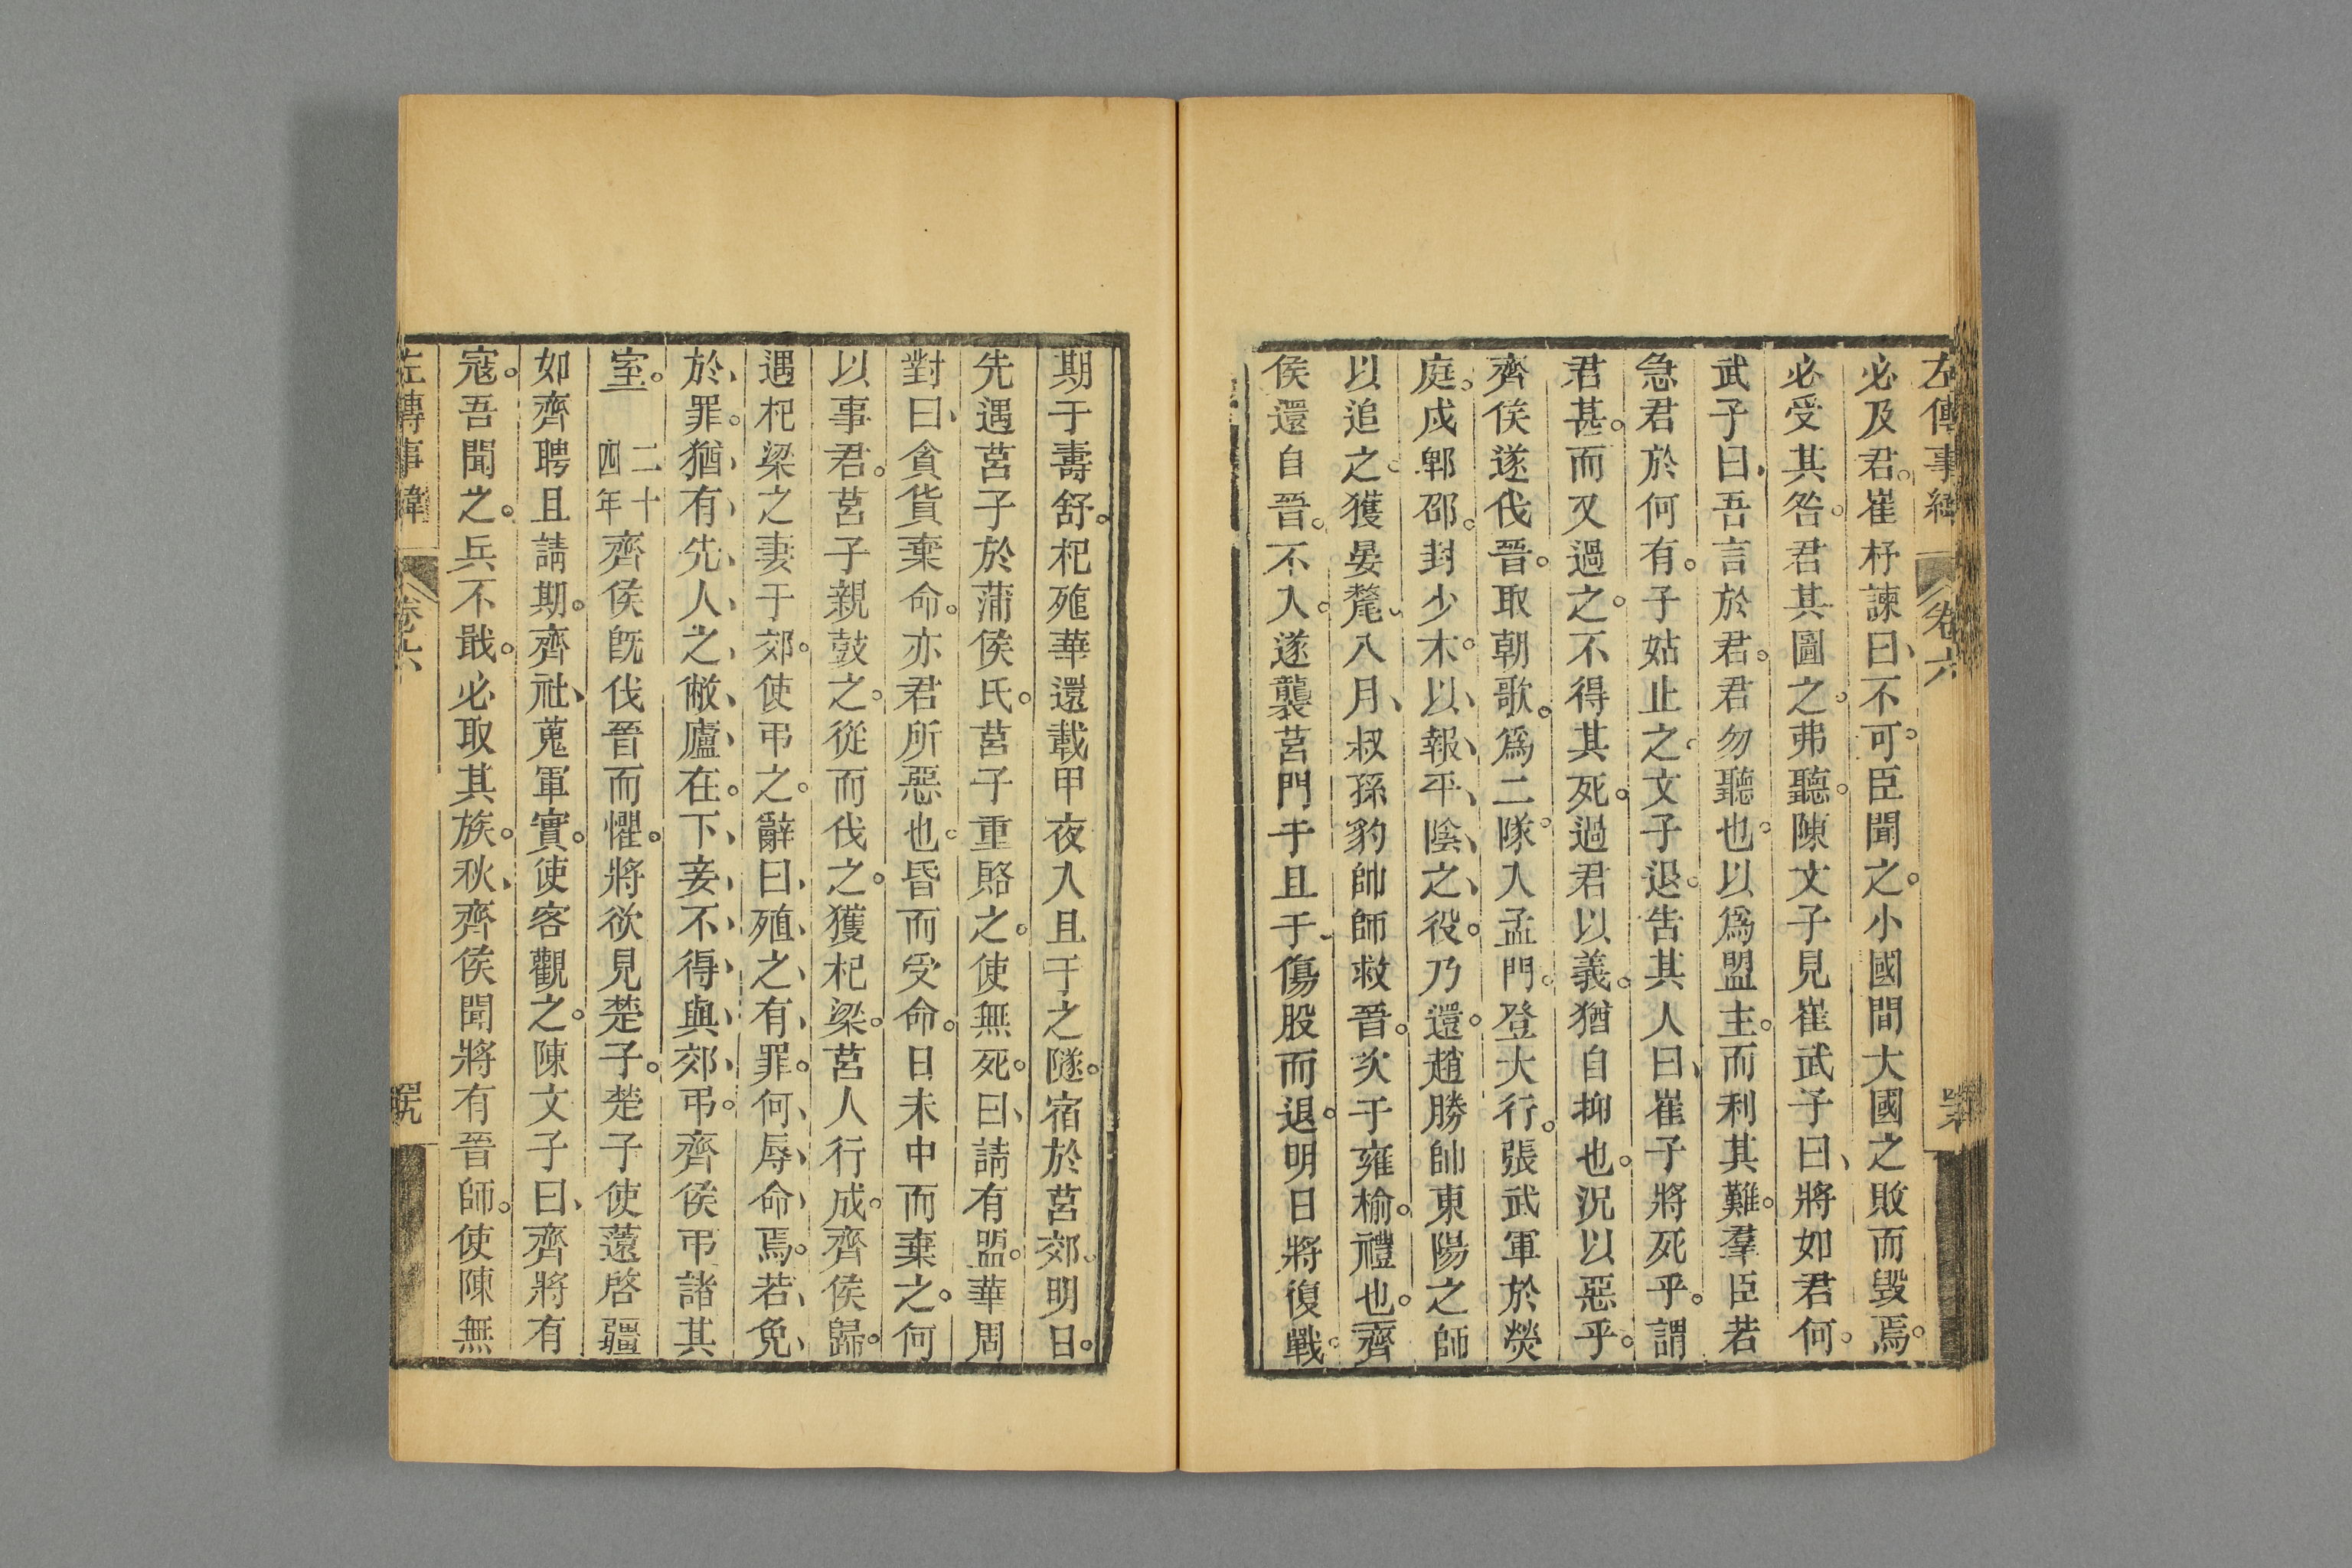 左傳事緯 卷六
必及君。崔杼諫曰、不可。臣聞之。小國間大國之敗而毀焉。
必受其咎。君其圖之。弗聽。陳文子見崔武子曰、將如君何。
武子曰、吾言於君。君勿聽也。以爲盟主。而利其難。羣臣若
急君於何有。子姑止之。文子退。告其人曰、崔子將死乎。謂
君甚。而又過之。不得其死。過君以義。猶自抑也。況以惡乎。
齊侯遂伐晉。取朝歌。爲二隊。入孟門。登大行。張武軍於熒
庭。戍郫邵。封少水。以報平陰之役。乃還。趙勝帥東陽之師
以追之。獲晏氂、八月、叔孫豹帥師救晉。次于雍榆。禮也。齊
侯還自晉。不入。遂襲莒門于且于、傷股而退。明日將復戰。
期于壽舒。杞殖華還載甲夜入且于之隧。宿於莒郊。明日。
先遇莒子於蒲侯氏。莒子重賂之。使無死。曰、請有盟。華周
對曰、貪貨棄命。亦君所惡也。昏而受命。日未中而棄之。何
以事君。莒子親鼓之。從而伐之。獲杞梁。莒人行成。齊侯歸。
遇杞梁之妻于郊。使弔之。辭曰、殖之有罪。何辱命焉。若免
於罪。猶有先人之敝廬在。下妾不得與郊弔。齊侯弔諸其
室。 二十四年齊侯旣伐晉而懼。將欲見楚子。楚子使薳啓疆
如齊聘且請期。齊社、蒐軍實。使客觀之。陳文子曰、齊將有
寇。吾聞之。兵不戢。必取其族。秋、齊侯聞將有晉師。使陳無
左傳事緯 卷六